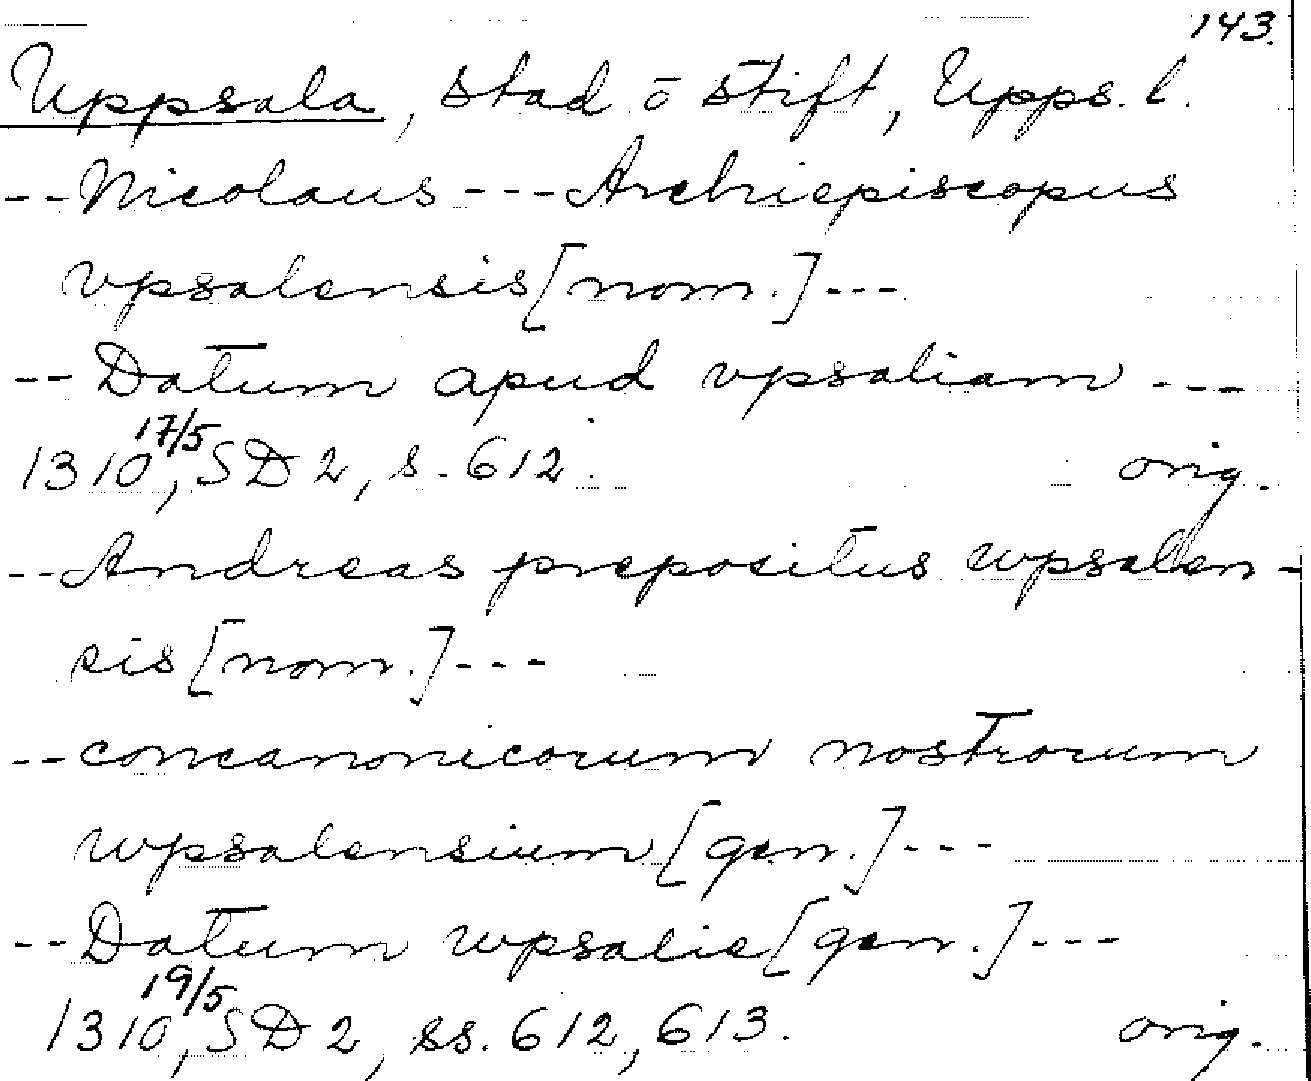 143.
Uppsala, stad o stift, Upps. l.
--Nicolaus---Archiepiscopus
vpsalensis[nom.]---
--Datum apud vpsaliam---
1310 17/5, SD 2, s. 612. orig.
--Andreas prepositus wpsalen-
sis[nom.]---
--concanonicorum nostrorum
wpsalensium[gen.]---
--Datum wpsalie[gen.]---
1310 19/5, SD 2, ss. 612, 613. orig.